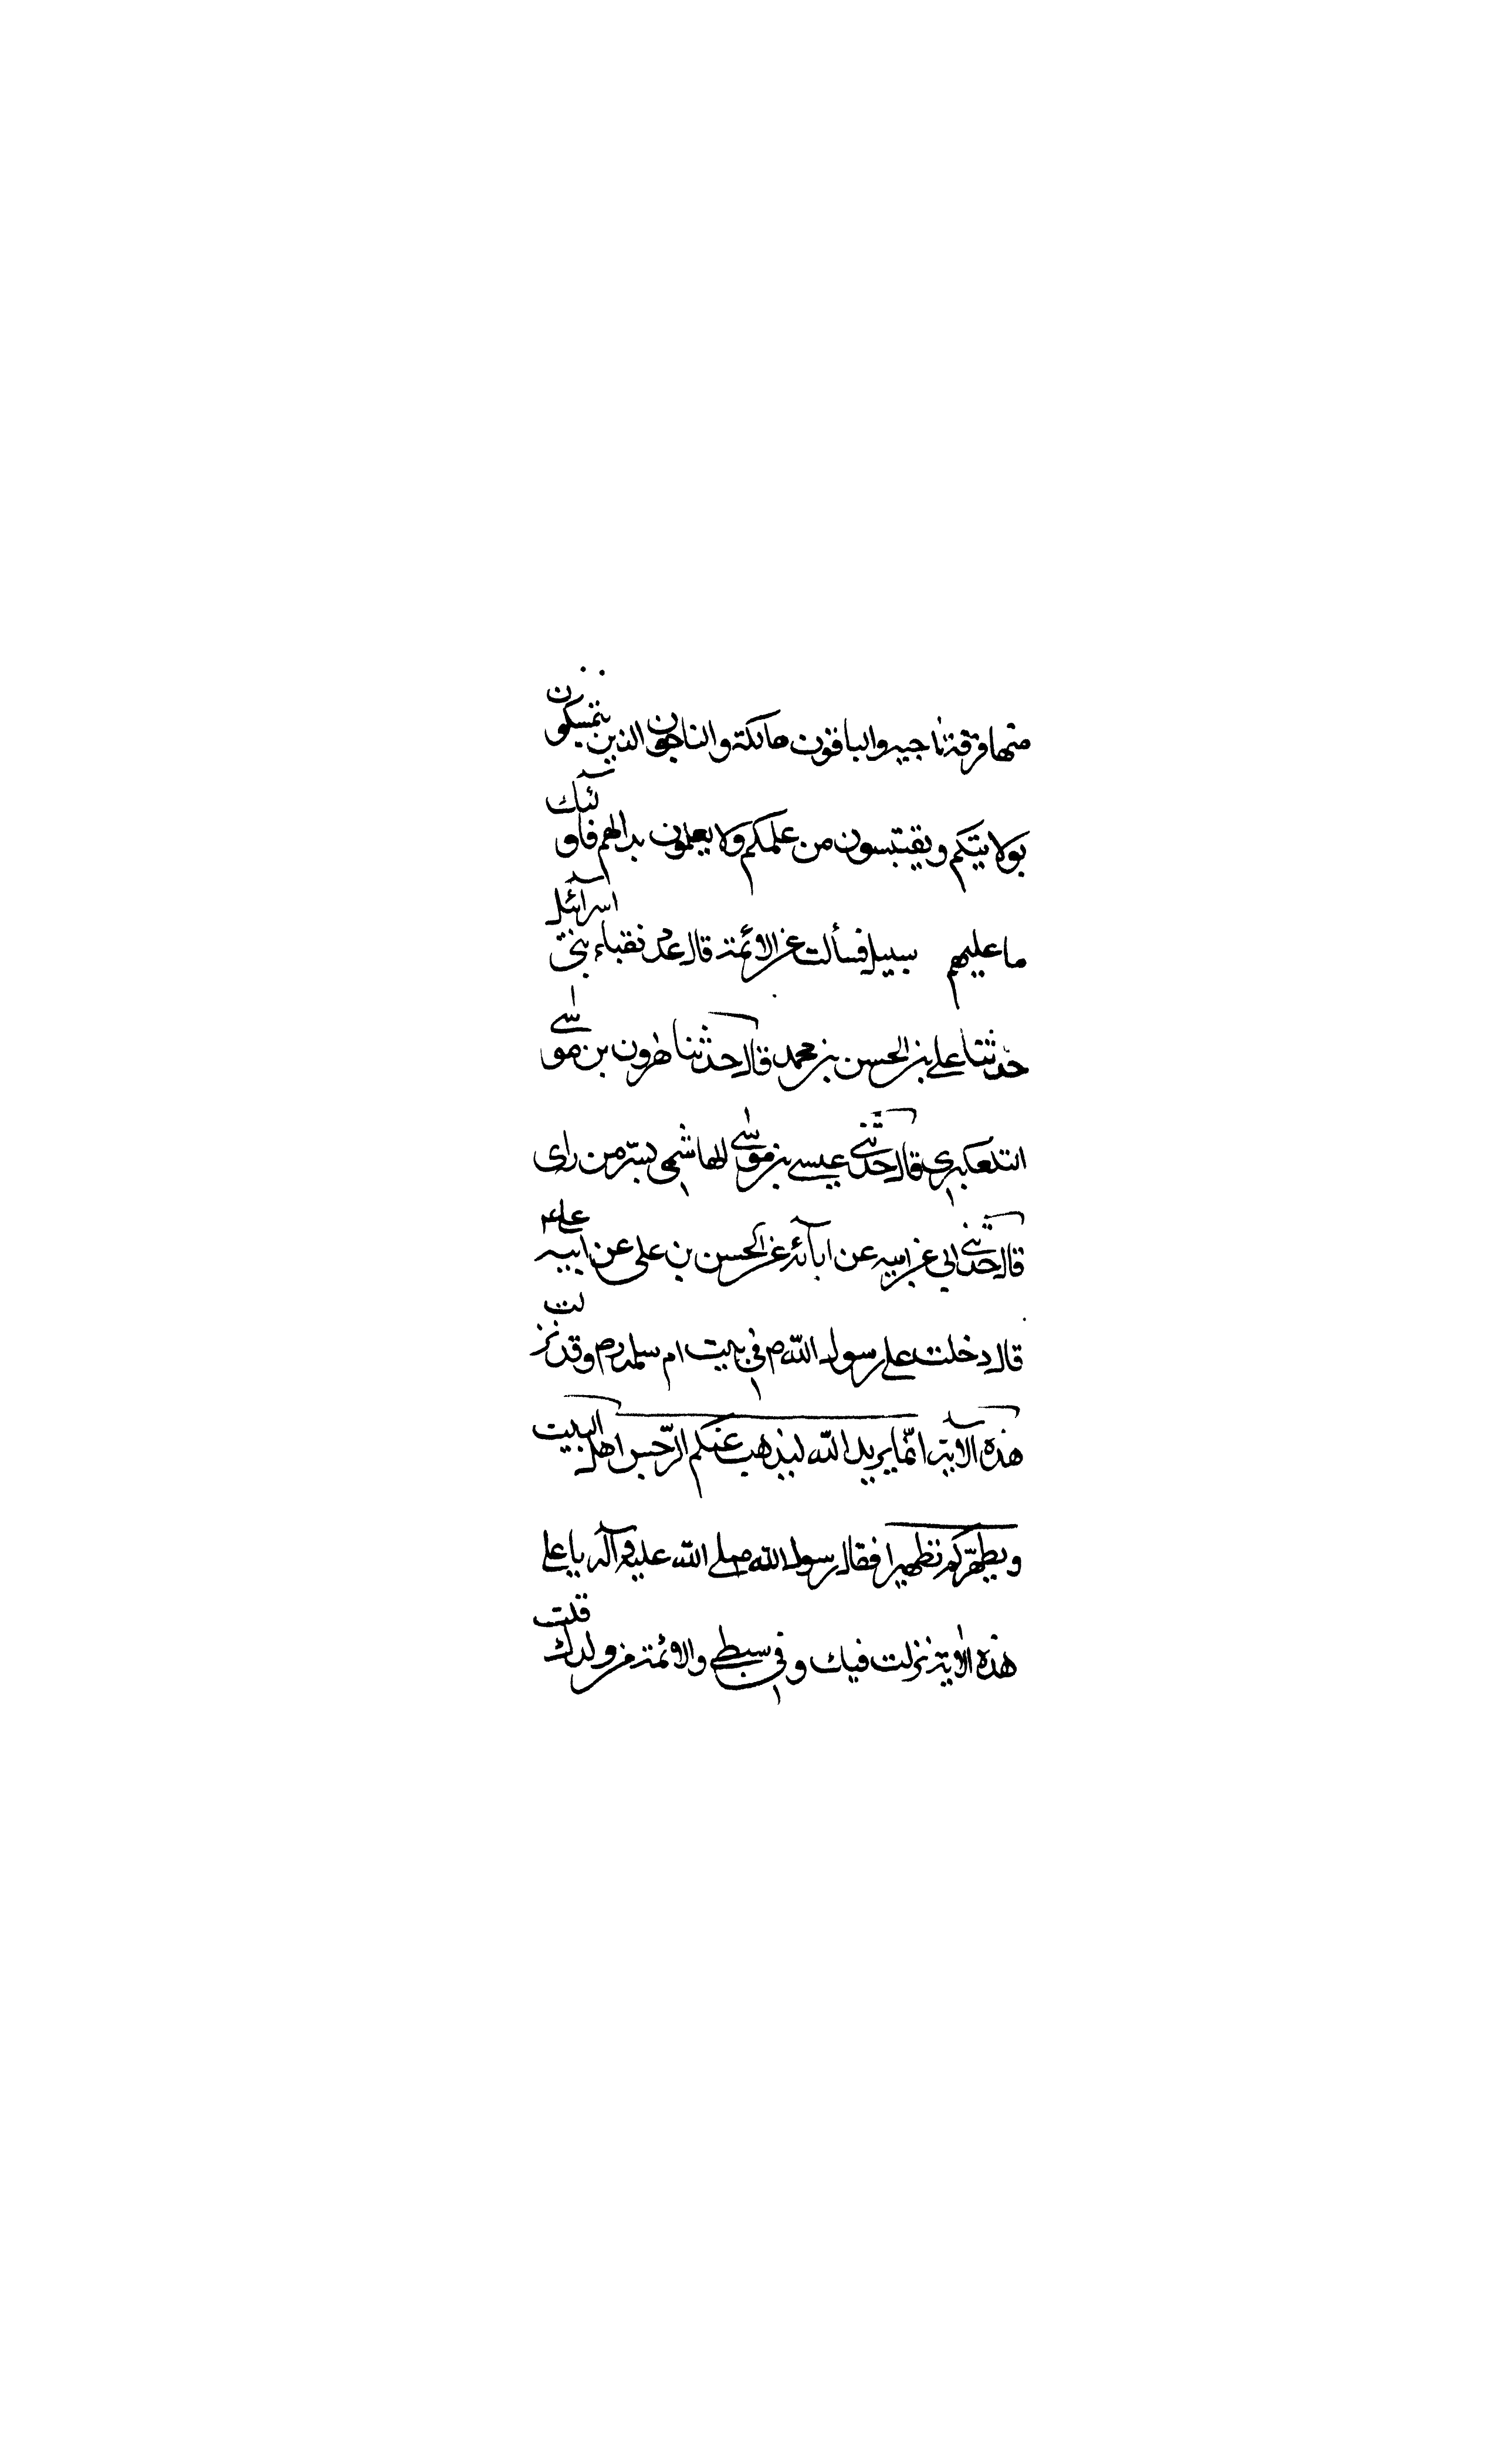 منها فرقة ناجيه والباقون هالكة والناجون الذين يتمسكون
بولايتكم ويقتبسون من علمكم ولا يعملون برايهم فاولئك
ما عليهم سبيل فسألت عن الائمة قال عدد نقباء بنى اسرآئيل
حدثنا على بن الحسن بن محمد قال حدثنا هرون بن موسى
التلعكبرى قال حدثنى عيسى بن موسى الهاشمى بسر من راى
قال حدثنى ابى عن ابيه عن ابآئه عن الحسن بن على عن ابيه على ع
قال دخلت على رسول الله ص فى بيت ام سلمه رم وقد نزلت
هذه الآية انما يريد الله ليذهب عنكم الرجس اهل البيت
ويطهركم تطهيرا فقال رسول الله صلى الله عليه وآله يا على
هذه الاية نزلت فيك وفى سبطى والائمة من ولدك قلت